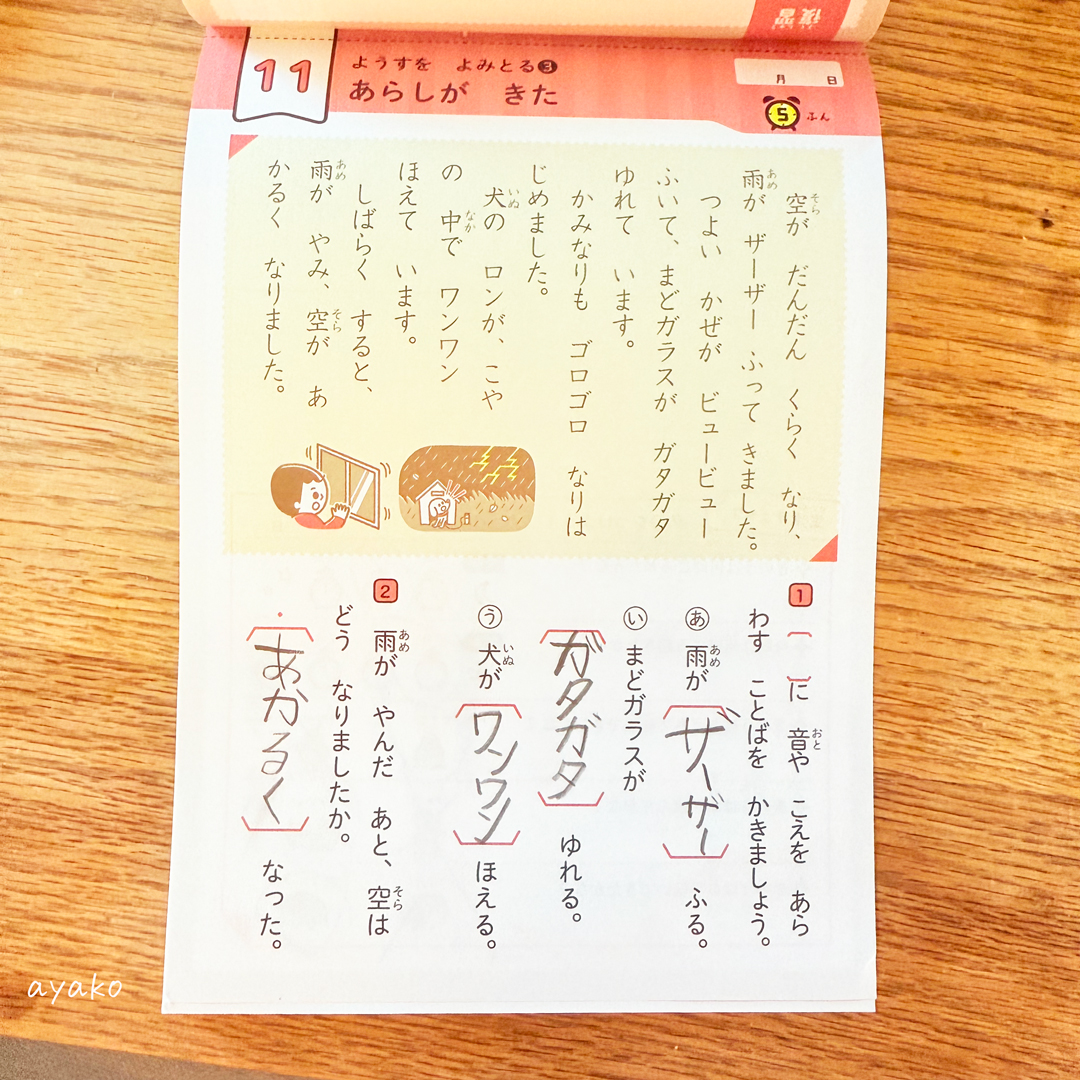 復習
11
ようすを よみとる❸
あらしが きた
月 日
5 ふん
空が だんだん くらく なり、
雨が ザーザー ふって きました。
つよい かぜが ビュービュー
ふいて、まどガラスが ガタガタ
ゆれて います。
かみなりも ゴロゴロ なりは
じめました。
犬の ロンが、こや
の 中で ワンワン
ほえて います。
しばらく すると、
雨が やみ、空が あ
かるく なりました。
1 〔 〕に 音や こえを あら
わす ことばを かきましょう。
あ 雨が 〔ザーザー〕 ふる。
い まどガラスが
〔ガタガタ〕 ゆれる。
う 犬が 〔ワンワン〕 ほえる。
2 雨が やんだ あと、空は
どう なりましたか。
〔あかるく〕 なった。
ayako